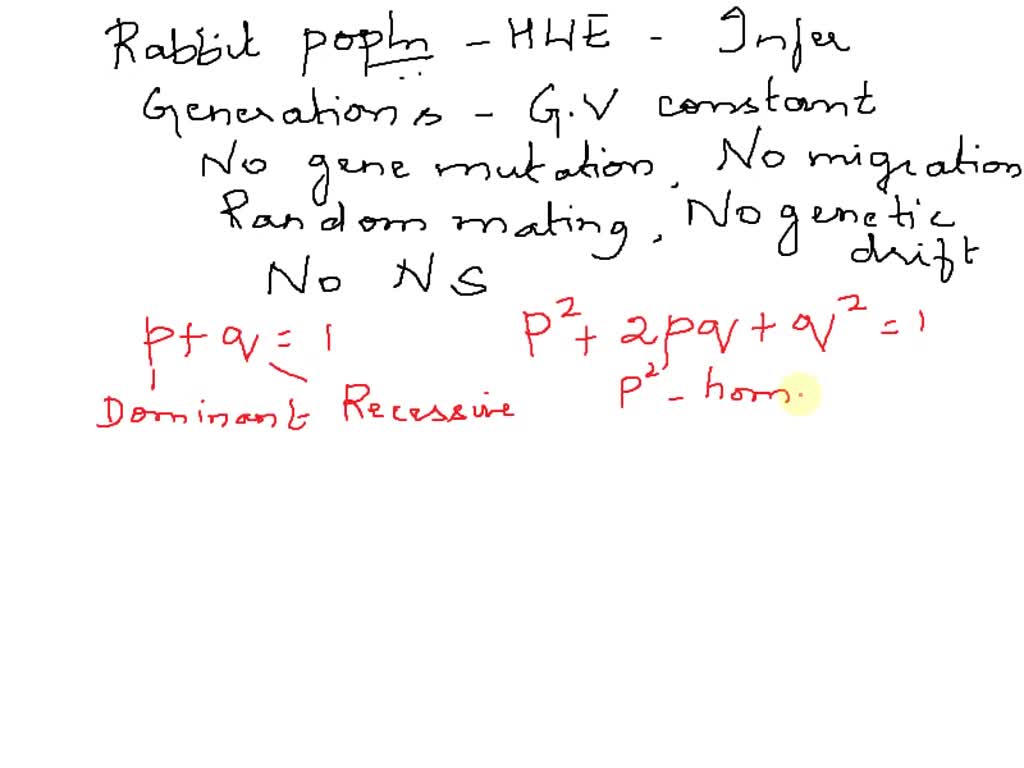 Rabbit popln - HWE - Infer
Generations - G.V constant
No gene mutation, No migration
Random mating, No genetic drift
No NS
p + q = 1 p² + 2pq + q² = 1
Dominant Recessive p² - hom.